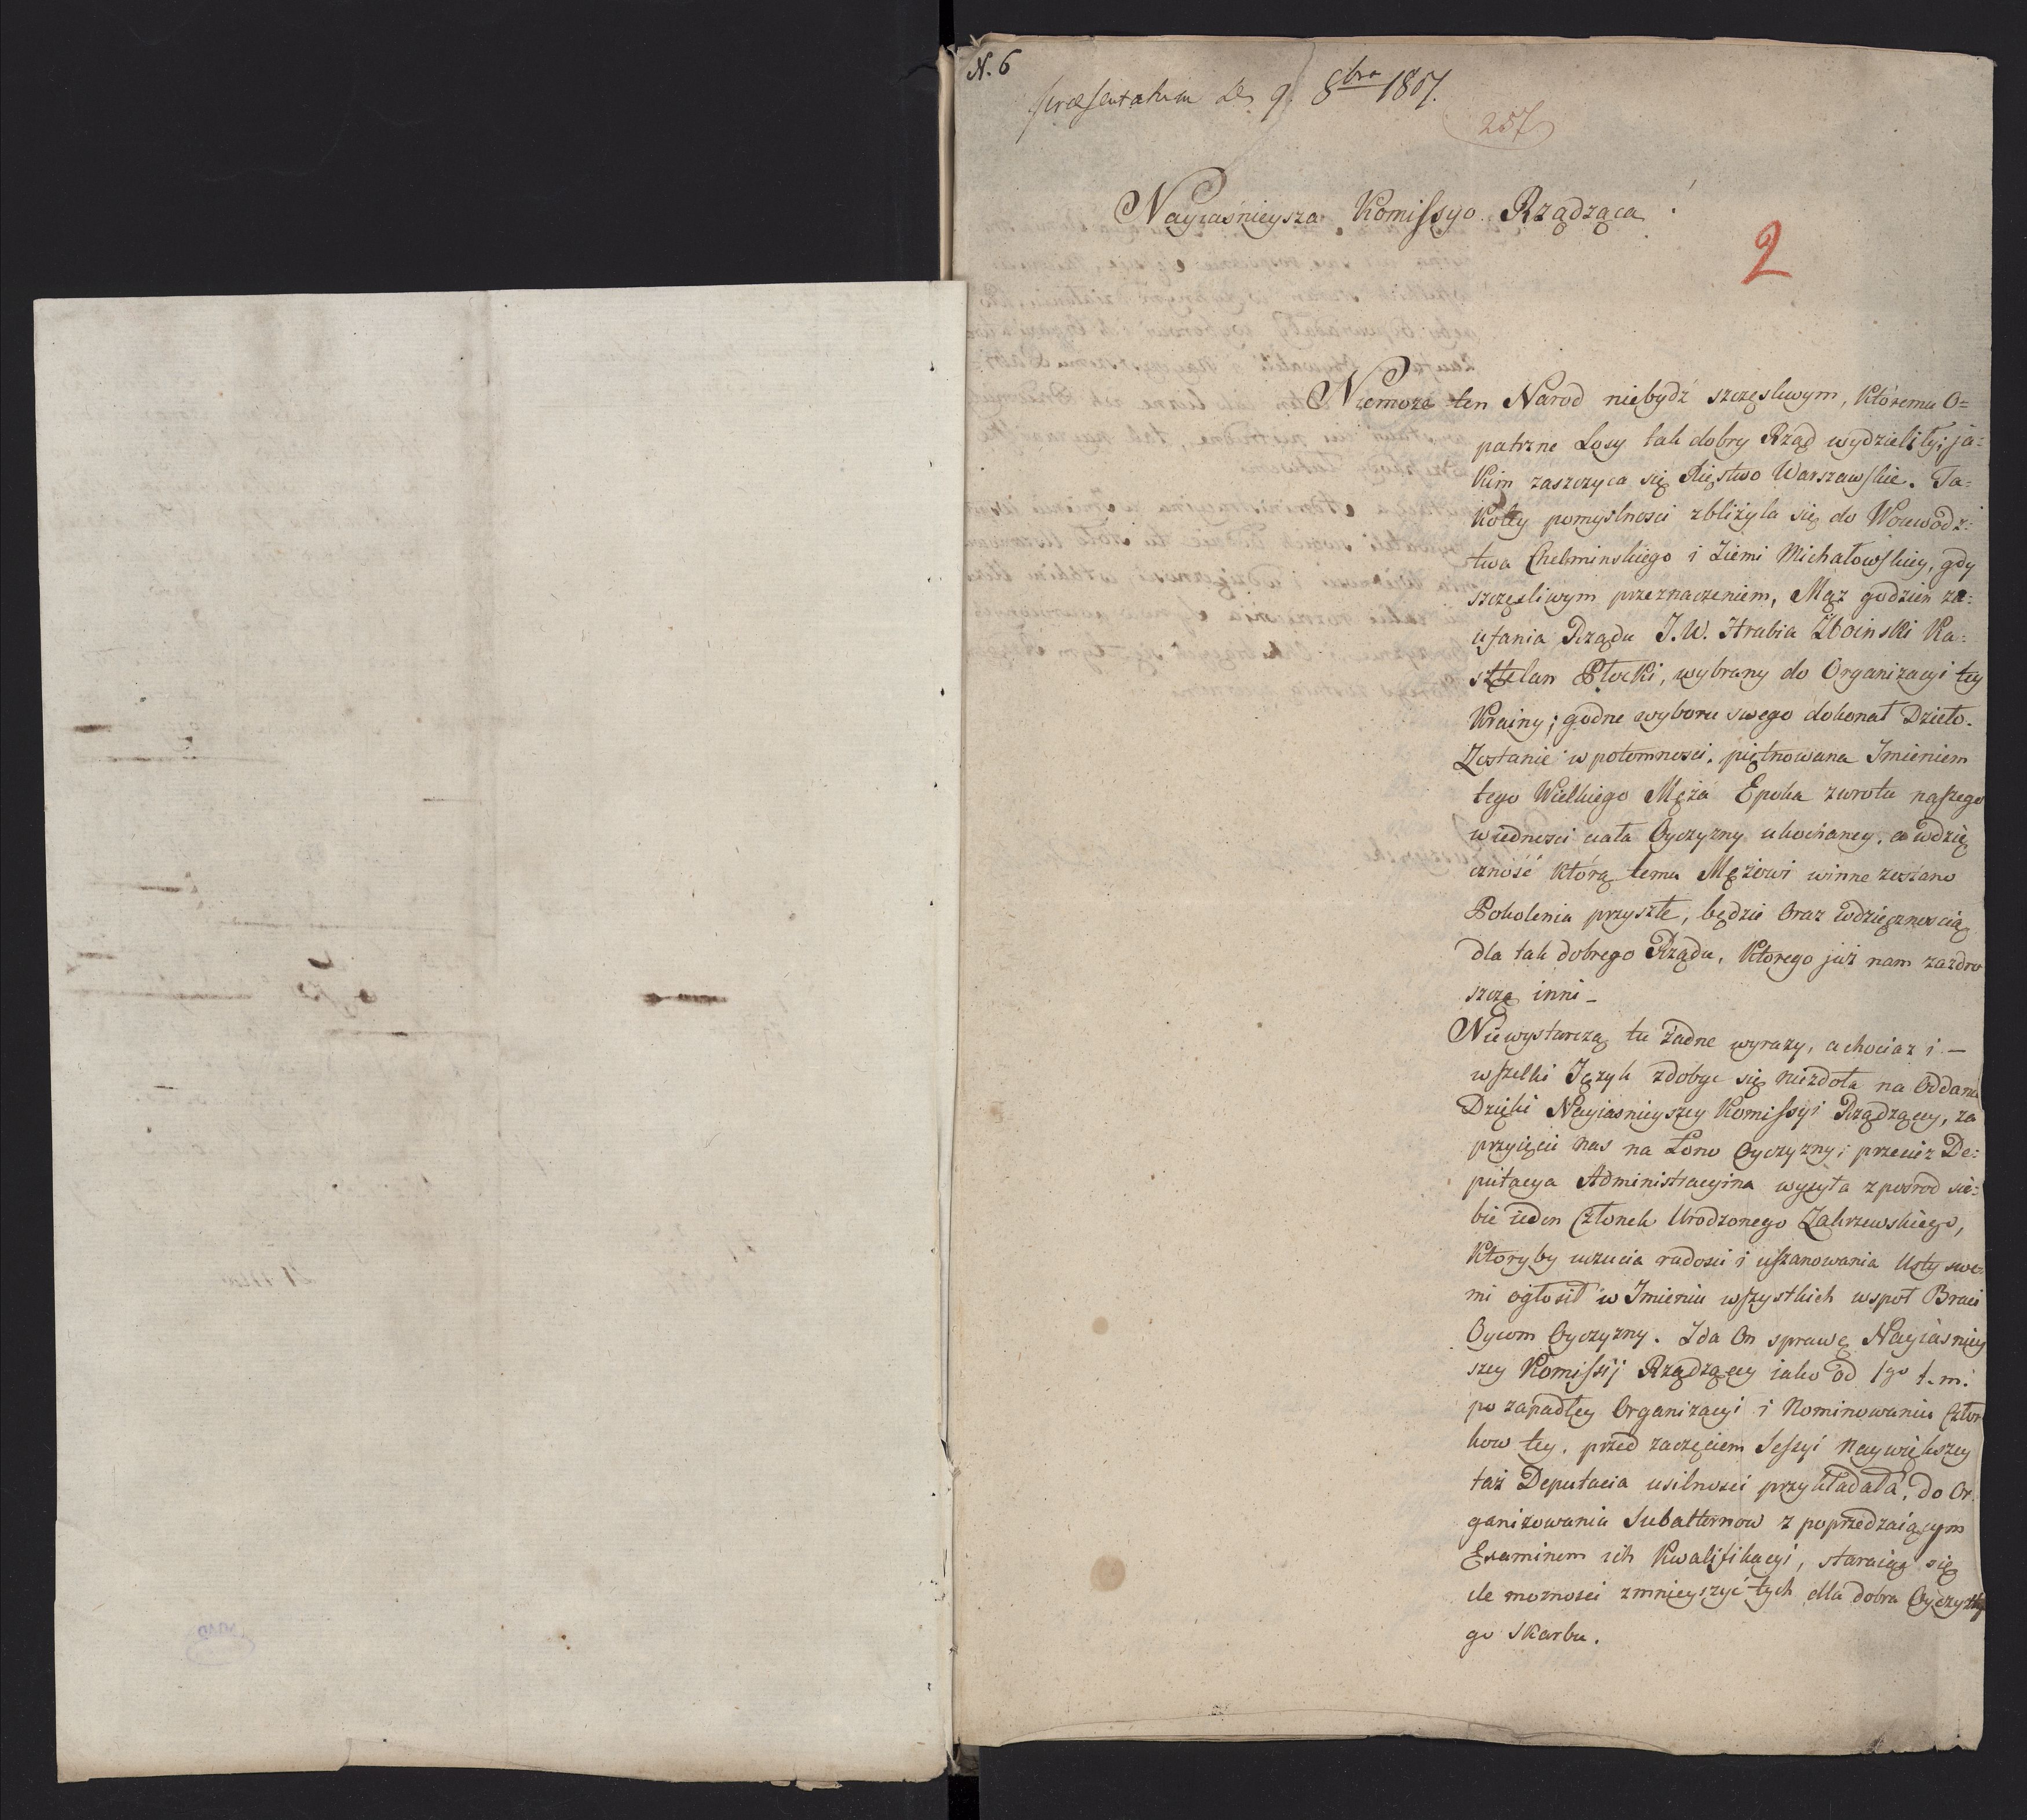 N. 6
præsentatum de 9 8bra 1807.
257
Nayiaśnieysza Komissyo Rządząca!
2
Niemoże ten Narod niebydź szczęsliwym, Któremu O=
patrzne Losy tak dobry Rząd wydzieliły; ja=
kim zaszczyca się Xięstwo Warszawskie. Ta=
koley pomyslnosci zbliżyła się do Woiewodz=
twa Chełminskiego i Ziemi Michałowskiey, gdy
szczęsliwym przeznaczeniem, Mąz godzien za=
ufania Rządu J.W. Hrabia Zboinski Ka=
sztelan Płocki, wybrany do Organizacyi tey
Krainy; godne wyboru swego dokonał Dzieło.
Zostanie w potomnosci, piętnowana Imieniem
tego Wielkiego Męża Epoka zwrotu naszego
w iednosci ciała Oyczyzny ukochaney, a wdzię
czność którą temu Mężowi winne
Pokolenia przyszłe, będzie Oraz wdzięcznoscią
dla tak dobrego Rządu, Ktorego już nam zazdro
szczą inni _
Niewystarczą tu żadne wyrazy, a chociaz i —
wszelki Język zdobyc się niezdoła na Oddanie
Dzięki Nayiasnieyszey Komissyi Rządzącey, za
przyięcie nas na Łono Oyczyzny; przecież De=
putacya Administracyina wysyła z posrod sie=
bie ieden Członek Urodzonego Zakrzewskiego,
Ktoryby uczucia radosci i uszanowania Usty swe=
mi ogłosił w Imieniu wszystkich wspoł Braci
Oycom Oyczyzny. Zda On sprawę Nayiasniey
szey Komissij Rządzącey iako od 1go t. m.
po zapadłey Organizacyi i Nominowaniu Człon
kow tey, przed zaczęciem Sessyi naywiększey
taż Deputacia usilnosci przykładała, do Or
ganizowania Subalternow z poprzedzaiącym
Examinem ich Kwalifikacyi, staraiąc się
ile moznosci zmnieyszyć tych dla dobra Oyczyste
go Skarbu.